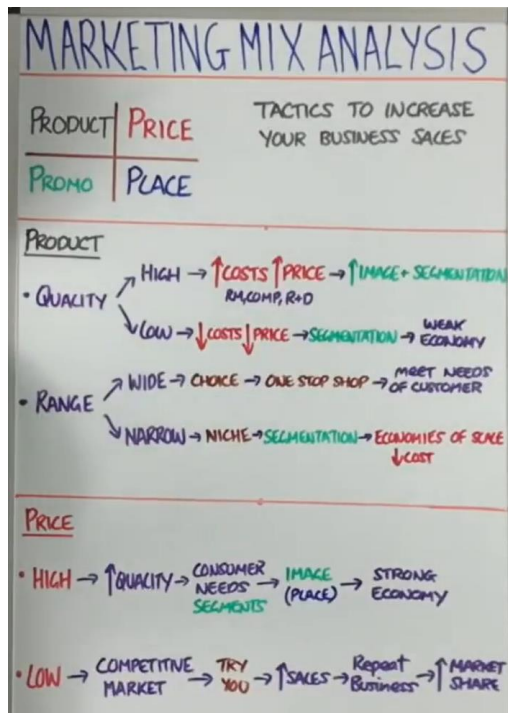 MARKETING MIX ANALYSIS
PRODUCT PRICE
PROMO PLACE
TACTICS TO INCREASE
YOUR BUSINESS SALES
PRODUCT
• QUALITY
HIGH → ↑COSTS ↑PRICE → ↑IMAGE + SEGMENTATION
RM, COMP, R+D
LOW → ↓COSTS ↓PRICE → SEGMENTATION → WEAK ECONOMY
• RANGE
WIDE → CHOICE → ONE STOP SHOP → MEET NEEDS OF CUSTOMER
NARROW → NICHE → SEGMENTATION → ECONOMIES OF SCALE
↓COST
PRICE
• HIGH → ↑QUALITY → CONSUMER NEEDS SEGMENTS → IMAGE (PLACE) → STRONG ECONOMY
• LOW → COMPETITIVE MARKET → TRY YOU → ↑SALES → Repeat Business → ↑MARKET SHARE